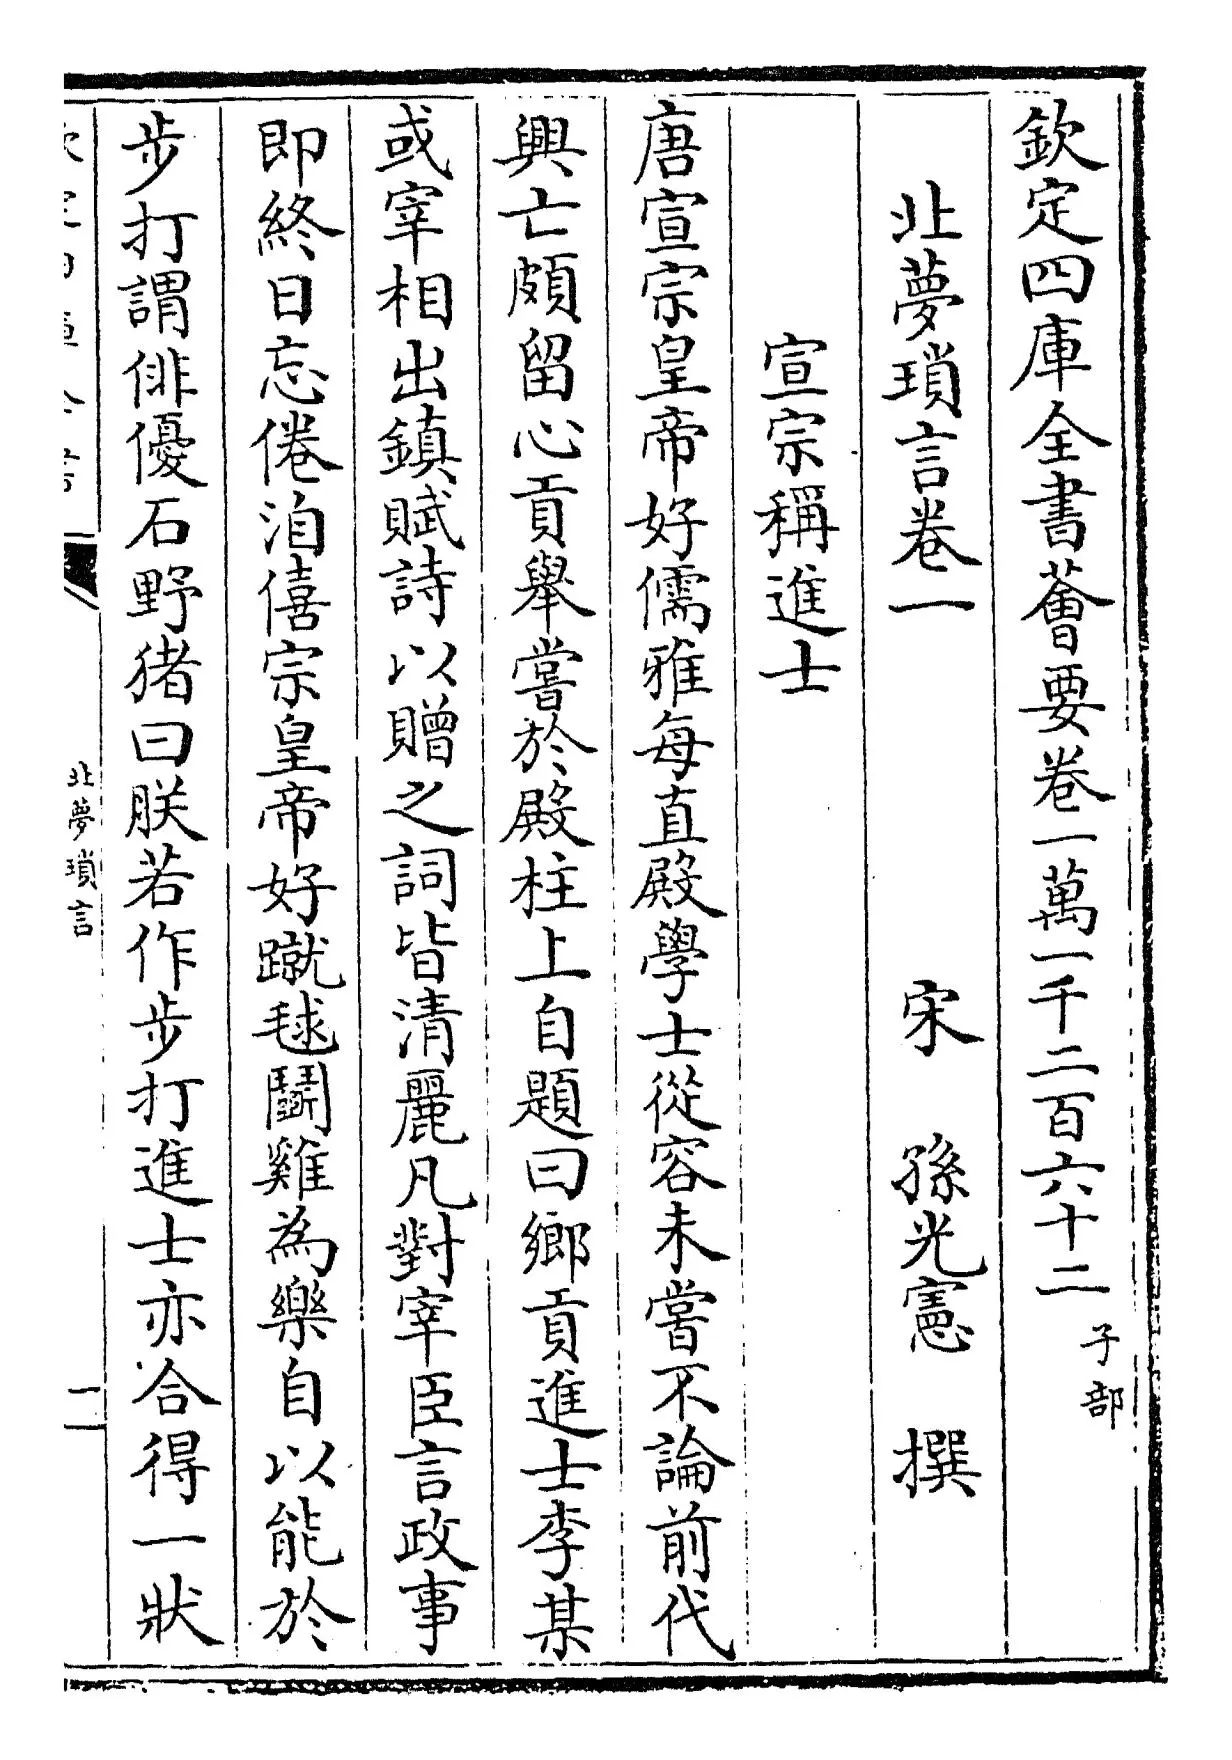 欽定四庫全書薈要卷一萬一千二百六十二 子部
北夢瑣言卷一
宋 孫光憲 撰
宣宗稱進士
唐宣宗皇帝好儒雅每直殿學士從容未嘗不論前代
興亡頗留心貢舉嘗於殿柱上自題曰鄉貢進士李某
或宰相出鎮賦詩以贈之詞皆清麗凡對宰臣言政事
即終日忘倦洎僖宗皇帝好蹴毬鬭雞為樂自以能於
步打謂俳優石野猪曰朕若作步打進士亦合得一狀
北夢瑣言
一